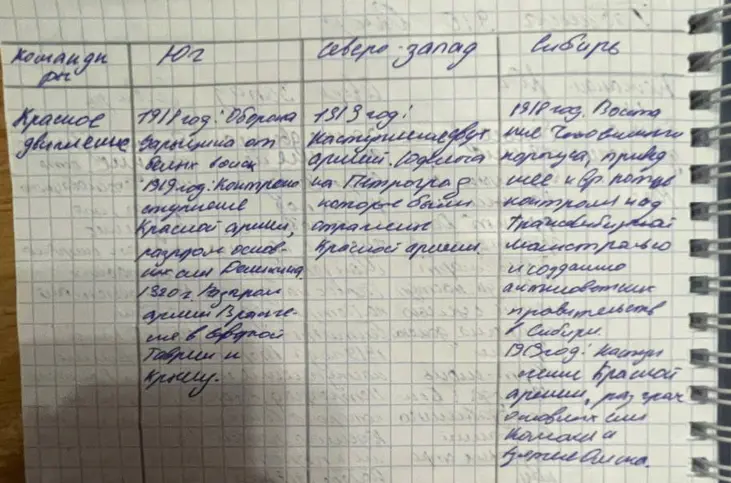 Командиры
Юг
Северо-запад
Сибирь
Красное
движение
1918 год: Оборона
Царицына от
белых войск
1919 год: Контрна
ступление
Красной армии,
разгром основ-
ных сил Деникина.
1920 г. Разгром
армии Вранге-
ля в Северной
Таврии и
Крыму.
1919 год:
Наступление двух
армий Юденича
на Петроград
которое были
отражены
Красной армией.
1918 год. Восста
ние Чехословацкого
корпуса, привед
шее к вр. потере
контроля над
Транссибирской
магистралью
и созданию
антисоветских
правительств
в Сибири.
1919 год: Насту
пление Красной
армии, разгром
основных сил
Колчака и
взятие Омска.